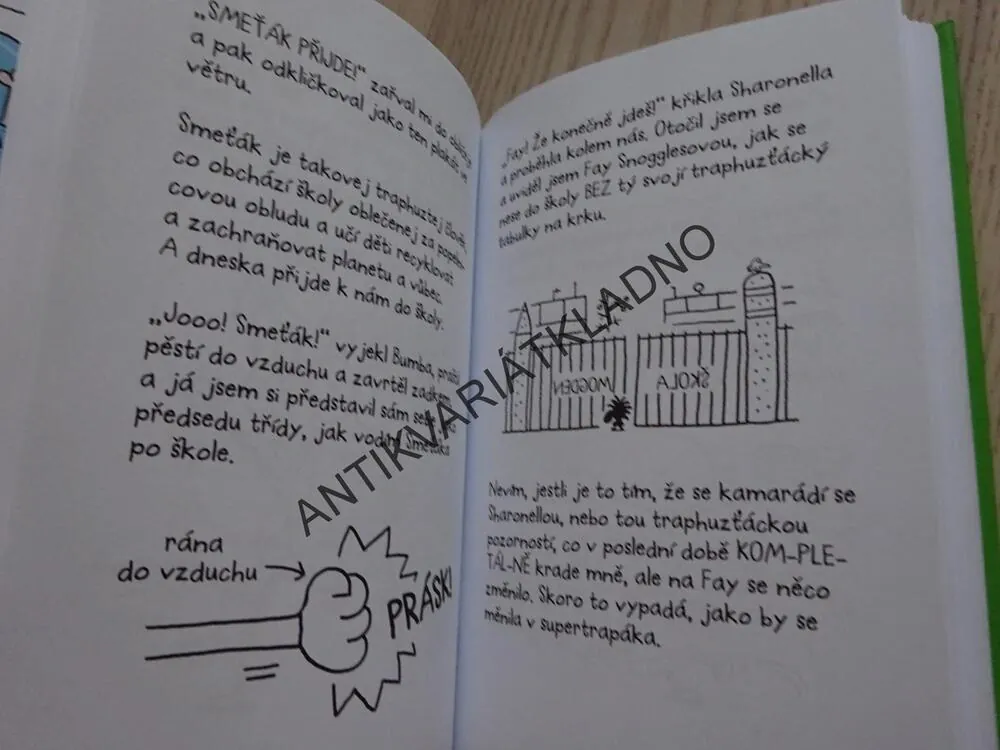 „SMEŤÁK PŘIJDE!“ zařval mi do obličeje
a pak odkličkoval jako ten plakát ve
větru.
Smeťák je takovej traphuztej člověk,
co obchází školy oblečenej za popelni-
covou obludu a učí děti recyklovat
a zachraňovat planetu a vůbec.
A dneska přijde k nám do školy.
„Jooo! Smeťák!“ vyjekl Bumba, praštil
pěstí do vzduchu a zavrtěl zadkem
a já jsem si představil sám sebe,
předsedu třídy, jak vodím Smeťáka
po škole.
rána
do vzduchu
PRÁSK!
„Fay! Že konečně jdeš!“ křikla Sharonella
a proběhla kolem nás. Otočil jsem se
a uviděl jsem Fay Snogglesovou, jak se
nese do školy BEZ tý svojí traphuzťácký
tabulky na krku.
MOGDEN
ŠKOLA
Nevím, jestli je to tím, že se kamarádí se
Sharonellou, nebo tou traphuzťáckou
pozorností, co v poslední době KOM-PLE-
TÁL-NĚ krade mně, ale na Fay se něco
změnilo. Skoro to vypadá, jako by se
měnila v supertrapáka.
ANTIKVARIÁTKLADNO